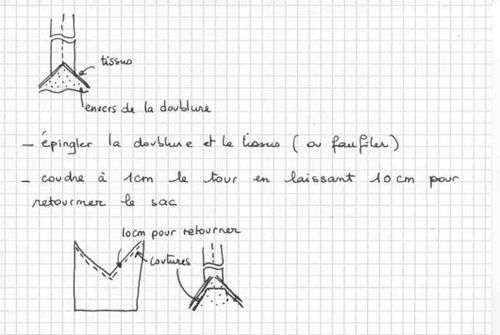 tissus
envers de la doublure
- épingler la doublure et le tissus (ou faufiler)
- coudre à 1cm le tour en laissant 10cm pour
retourner le sac
10cm pour retourner
coutures